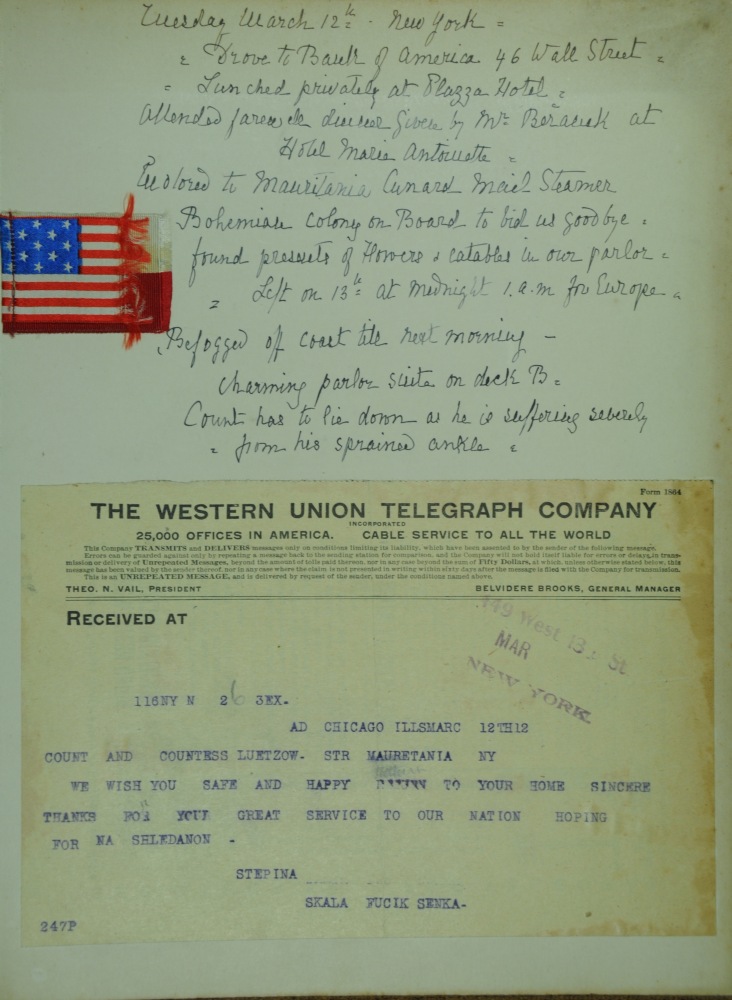 Tuesday March 12th. New York =
= Drove to Bank of America 46 Wall Street =
= Lunched privately at Plazza Hotel =
Attended farewele dinner given by Mr Beranek at
Hotel Marie Antoinette =
to Mauritania Cunard Mail Steamer
Bohemian colony on Board to bid us goodbye =
found presents of Flowers & eatables in our parlor =
= Left on 13th at Midnight 1.a.m for Europe =
Befogged off coast till next morning -
Charming parlor suite on deck B =
Count has to lie down as he is suffering severely
= from his sprained ankle =
Form 1864
THE WESTERN UNION TELEGRAPH COMPANY
INCORPORATED
25,000 OFFICES IN AMERICA. CABLE SERVICE TO ALL THE WORLD
This Company TRANSMITS and DELIVERS messages only on conditions limiting its liability, which have been assented to by the sender of the following message.
Errors can be guarded against only by repeating a message back to the sending station for comparison, and the Company will not hold itself liable for errors or delays in trans-
mission or delivery of Unrepeated Messages, beyond the amount of tolls paid thereon, nor in any case beyond the sum of Fifty Dollars, at which, unless otherwise stated below, this
message has been valued by the sender thereof, nor in any case where the claim is not presented in writing within sixty days after the message is filed with the Company for transmission.
This is an UNREPEATED MESSAGE, and is delivered by request of the sender, under the conditions named above.
THEO. N. VAIL, PRESIDENT BELVIDERE BROOKS, GENERAL MANAGER
RECEIVED AT
349 West 13: St
MAR
NEW YORK.
116NY N 26 3EX-
AD CHICAGO ILLSMARC 12TH12
COUNT AND COUNTESS LUETZOW- STR MAURETANIA NY
WE WISH YOU SAFE AND HAPPY RETURN TO YOUR HOME SINCERE
THANKS FOR YOUR GREAT SERVICE TO OUR NATION HOPING
FOR NA SHLEDANON -
STEPINA
SKALA FUCIK SENKA-
247P